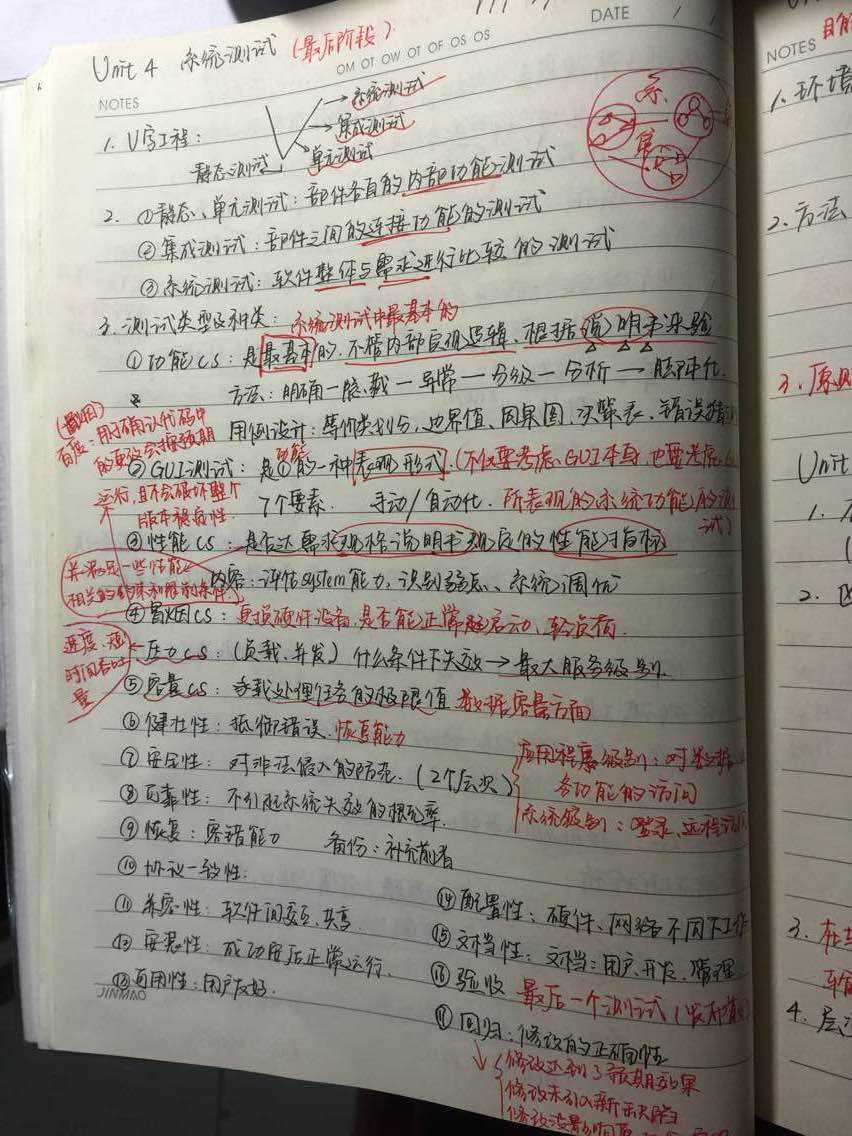 Unit 4 系统测试 (最后阶段).
DATE / /
OM OT OW OT OF OS OS
NOTES
→系统测试
→集成测试
单元测试
1. V字工程:
静态测试
系
集
2. ①静态、单元测试: 部件各自的内部功能测试
②集成测试: 部件之间的连接功能的测试
③系统测试: 软件整体与需求进行比较的测试
3. 测试类型及种类: 系统测试中最基本的
①功能CS: 是最基本的, 不管内部实现逻辑、根据说明书来验
方法: 明确—隐藏—异常—分级—分析—
(冒烟)
百度: 用于确认代码中
的更改会按预期
运行, 且不会破坏整个
版本稳定性.
用例设计: 等价类划分, 边界值、因果图, 决策表、错误猜
②GUI测试: 是①的一种表现形式. (不仅要考虑GUI本身, 也要考虑
功能
7个要素. 手动/自动化. 所表现的系统功能的测
试)
③性能CS: 是否达需求规格说明书规定的性能指标
并 是一些性能
相关的约束和限制条件.
内容: 评估system能力, 识别弱点、系统调优
④冒烟CS: 更换硬件设备, 是否能正常启动, 轻负荷.
压力CS: (负载、并发) 什么条件下失效→最大服务级别.
速度、短
时间吞吐
量
⑤容量CS: 承载处理任务的极限值 数据容量方面
⑥健壮性: 抵御错误、恢复能力
⑦安全性: 对非法侵入的防范. (2个层次)
应用程序级别: 对数据
各功能的访问
系统级别: 登录、远程访问
⑧可靠性: 不引起系统失效的概率.
⑨恢复: 容错能力 备份: 补充前者
⑩协议一致性:
⑪兼容性: 软件间交互、共享.
⑫安装性: 成功安后正常运行.
⑬可用性: 用户友好.
⑭配置性: 硬件、网络不同下工作
⑮文档性: 文档: 用户、开发、管理
⑯验收 最后一个测试
⑰回归: 修改的正确性
修改达到了预期效果
修改未引入新缺陷
JINMAO
NOTES 目的
1. 环境
2. 方法
3. 原则
Unit
1.
2.
3.
4. 层